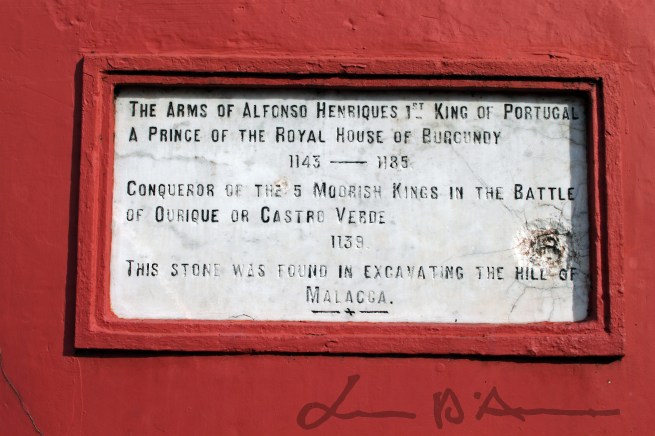 THE ARMS OF ALFONSO HENRIQUES 1ST KING OF PORTUGAL
A PRINCE OF THE ROYAL HOUSE OF BURGUNDY
1143 — 1185
CONQUEROR OF THE 5 MOORISH KINGS IN THE BATTLE
OF OURIQUE OR CASTRO VERDE
1139.
THIS STONE WAS FOUND IN EXCAVATING THE HILL OF
MALACCA.